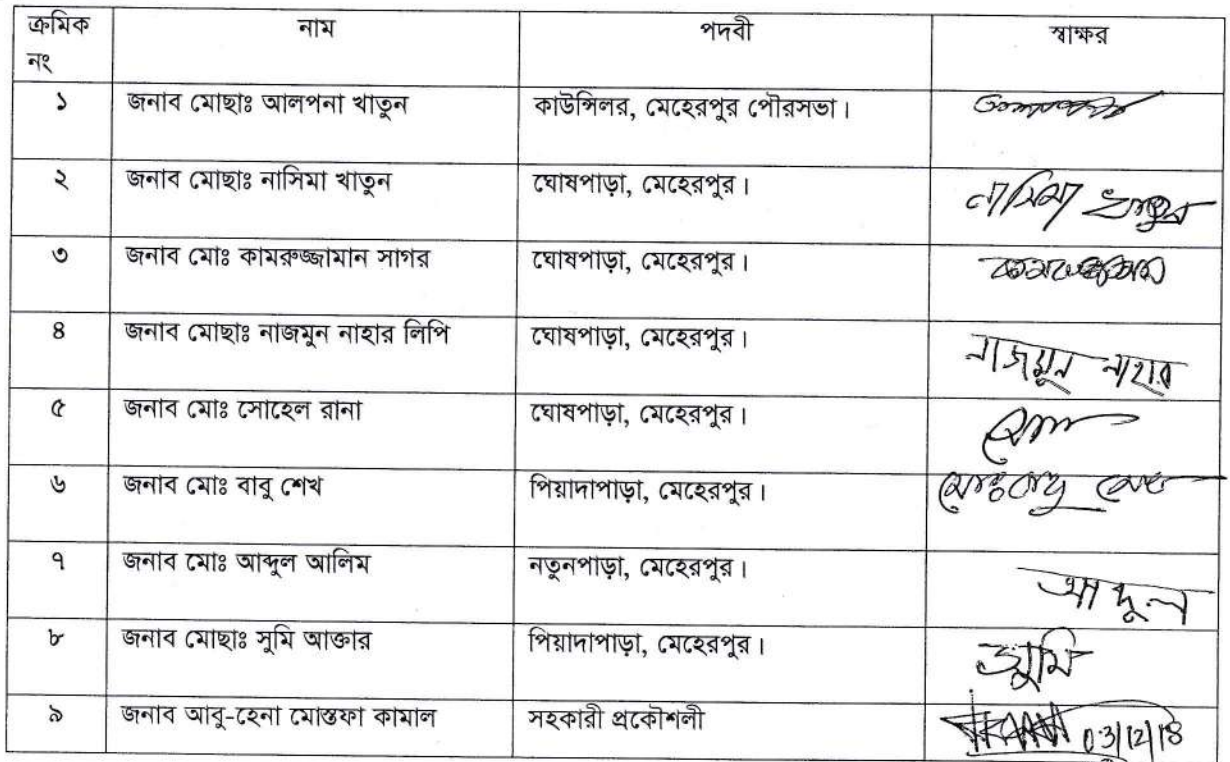 ক্রমিক নং নাম পদবী স্বাক্ষর
১ জনাব মোছাঃ আলপনা খাতুন কাউন্সিলর, মেহেরপুর পৌরসভা।
২ জনাব মোছাঃ নাসিমা খাতুন ঘোষপাড়া, মেহেরপুর। নাসিমা খাতুন
৩ জনাব মোঃ কামরুজ্জামান সাগর ঘোষপাড়া, মেহেরপুর।
৪ জনাব মোছাঃ নাজমুন নাহার লিপি ঘোষপাড়া, মেহেরপুর। নাজমুন নাহার
৫ জনাব মোঃ সোহেল রানা ঘোষপাড়া, মেহেরপুর।
৬ জনাব মোঃ বাবু শেখ পিয়াদাপাড়া, মেহেরপুর। মোঃ বাবু শেখ
৭ জনাব মোঃ আব্দুল আলিম নতুনপাড়া, মেহেরপুর। আব্দুল
৮ জনাব মোছাঃ সুমি আক্তার পিয়াদাপাড়া, মেহেরপুর। সুমি
৯ জনাব আবু-হেনা মোস্তফা কামাল সহকারী প্রকৌশলী 03/12/18